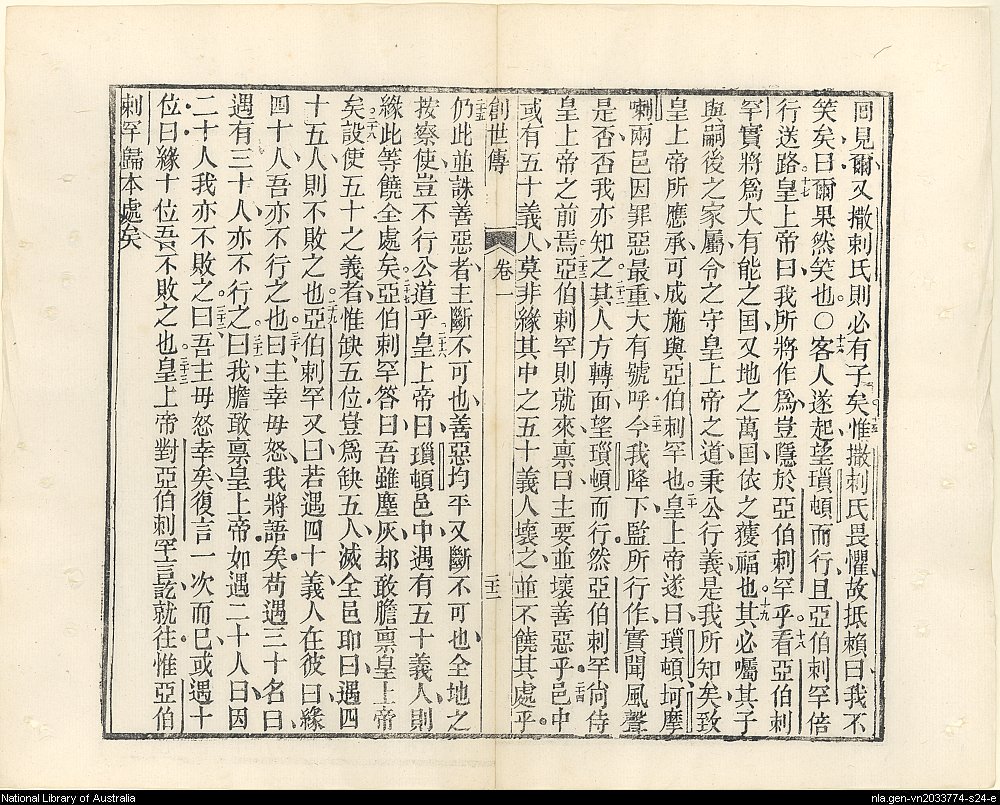 囘見爾又撒剌氏則必有子矣十五惟撒剌氏畏懼故抵賴曰我不
笑矣曰爾果然笑也〇十六客人遂起望瑣頓而行且亞伯剌罕倍
行送路十七皇上帝曰我所將作爲豈隱於亞伯剌罕乎十八看亞伯剌
罕實將爲大有能之国又地之萬国依之獲福也十九其必囑其子
與嗣後之家屬令之守皇上帝之道秉公行義是我所知矣致
皇上帝所應承可成施與亞伯剌罕也二十皇上帝遂曰瑣頓坷摩
喇兩邑因罪惡最重大有號呼二十一今我降下監所行作實聞風聲
是否否我亦知之二十二其人方轉面望瑣頓而行然亞伯剌罕尙侍
皇上帝之前焉二十三亞伯剌罕則就來禀曰主要並壞善惡乎二十四邑中
或有五十義人莫非緣其中之五十義人壞之並不饒其處乎
創世傳
卷一
二十二
二十五仍此並誅善惡者主斷不可也善惡均平又斷不可也全地之
按察使豈不行公道乎二十六皇上帝曰瑣頓邑中遇有五十義人則
緣此等饒全處矣二十七亞伯剌罕答曰吾雖塵灰却敢膽禀皇上帝
矣二十八設使五十之義者惟缺五位豈爲缺五人滅全邑耶曰遇四
十五人則不敗之也二十九亞伯剌罕又曰若遇四十義人在彼曰緣
四十人吾亦不行之也三十曰主幸毋怒我將語矣苟遇三十名曰
遇有三十人亦不行之三十一曰我膽敢禀皇上帝如遇二十人曰因
二十人我亦不敗之三十二曰吾主毋怒幸矣復言一次而已或遇十
位曰緣十位吾不敗之也三十三皇上帝對亞伯剌罕言訖就往惟亞伯
剌罕歸本處矣
National Library of Australia
nla.gen-vn2033774-s24-e